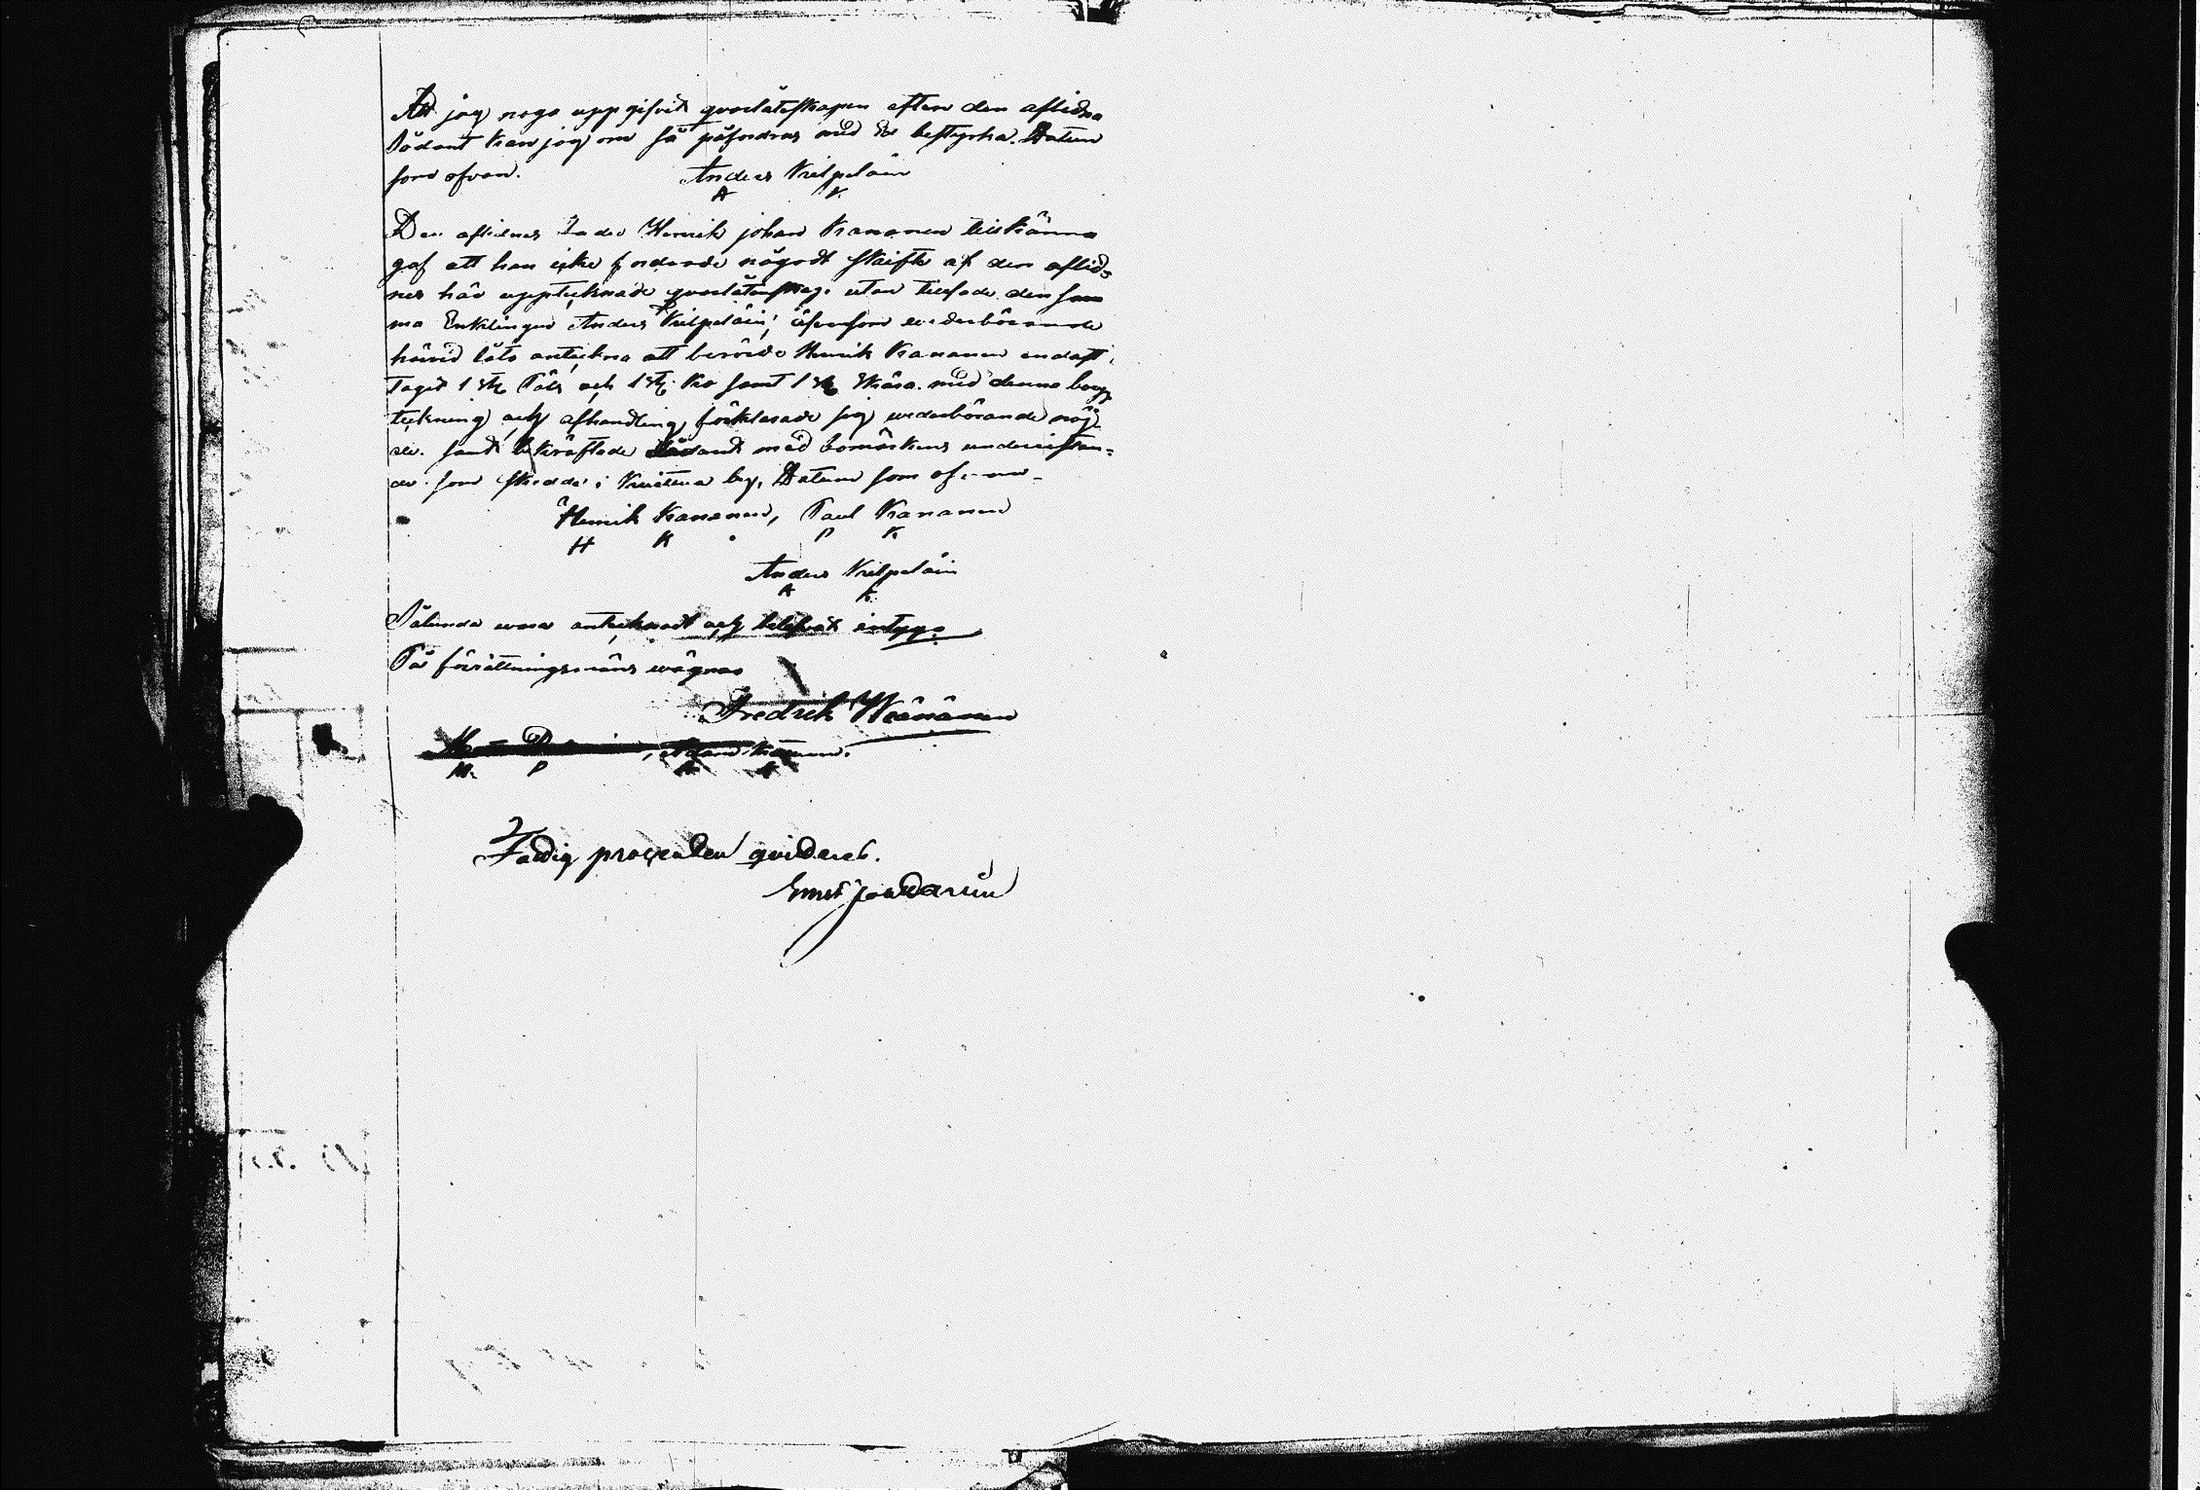 Att jag noga uppgifvit qvarlåtenskapen efter den aflidna
Sådant kan jag om så påfordras med Ed bestyrka. Datum
som ofvan. Anders Kilpeläin
A K
Den aflidnes Fader Henrik johan Kananen tillkänna
gaf att han icke fordrade någodt skifte af den aflid=
nes här upptecknade qvarlåtenskap utan den sam
ma Enklingen Anders Kilpeläin; äfvensom vederbörande
härvid läto anteckna att berörde Henrik Kananen endast
taget 1 st och 1 st Ko samt 1 st med denna boupp
teckning och afhandling förklarade sig vederbörande nöj
de samt bekräftade sådant med bomärkens underristan=
de som skedde i by, Datum som ofvan
Henrik Kananen, Paul Kananen
H K P K
Anders Kilpeläin
A K
Sålunda vara antecknadt och intyga
På förrättningsmäns vägnar
Fredrik Wäänänen
M P
Fattig procenten qvitteras.